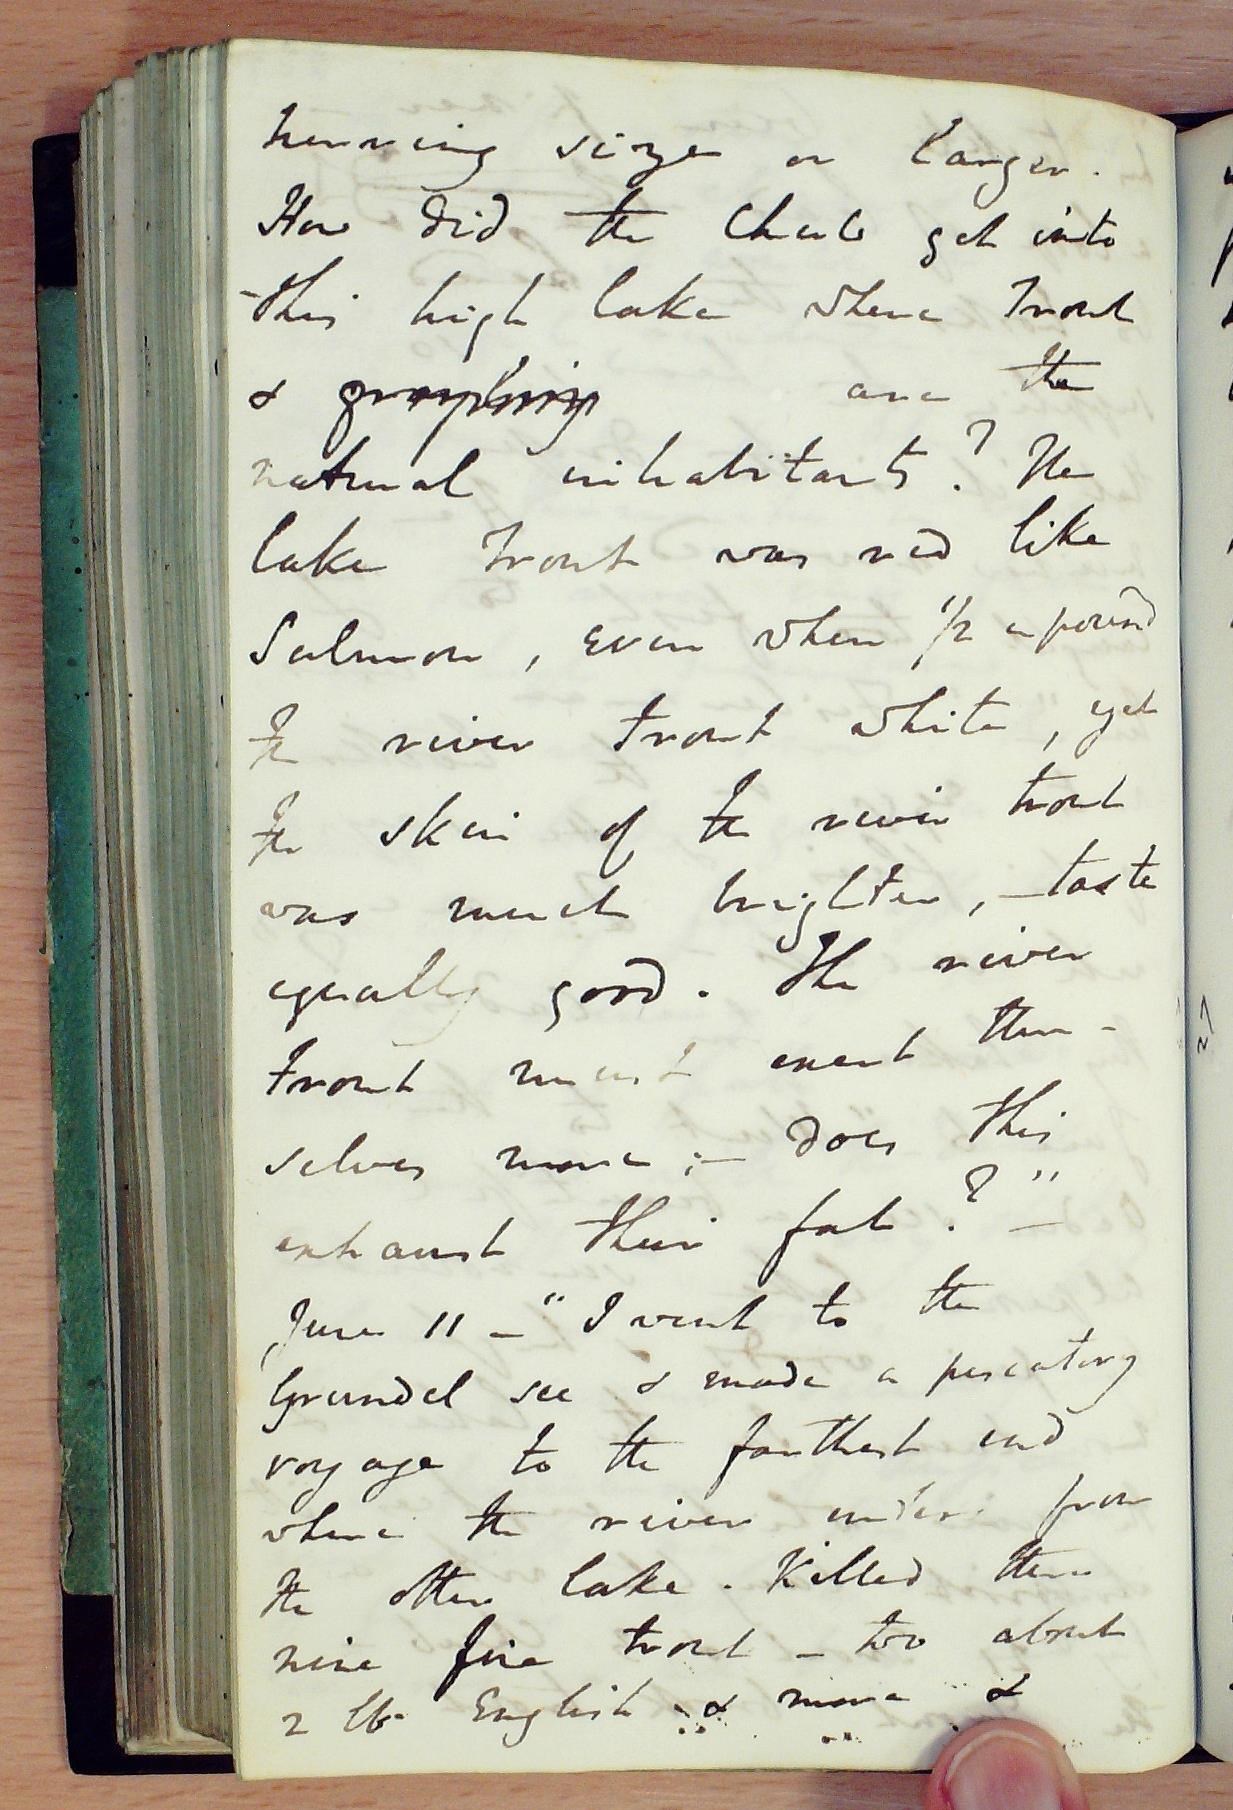 herring size or larger.
How did the Chub get into
this high lake where Trout
& grayling are the
natural inhabitants? The
lake Trout was red like
Salmon, even when 1/2 a pound
The river trout white, yet
The skin of the river trout
was much brighter, – taste
equally good. The river
trout must exert them-
selves more; – does this
exhaust their fat?" –
June 11 – "I went to the
Grundel see & made a piscatory
voyage to the farthest end
where the river enters from
the other lake. Killed there
nine fine trout – two about
2 lb English & more &
27